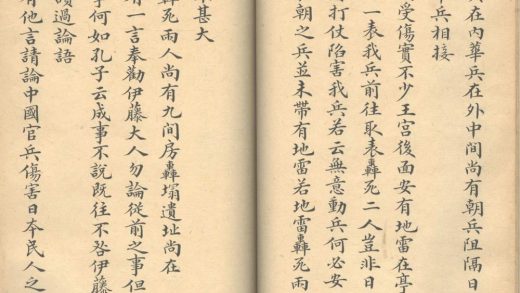 在內華兵在外中間尚有朝兵阻隔日
兵相接
受傷實不少王宮後面安有地雷在亭
一表我兵前往取表轟死二人豈非日
打仗陷害我兵若云無意動兵何必安
朝之兵並未帶有地雷若地雷轟死兩
甚大
轟死兩人尚有九間房轟塌遺址尚在
有一言奉勸伊藤大人勿論從前之事但
于何如孔子云成事不說既往不咎伊藤
讀過論語
有他言請論中國官兵傷害日本民人之